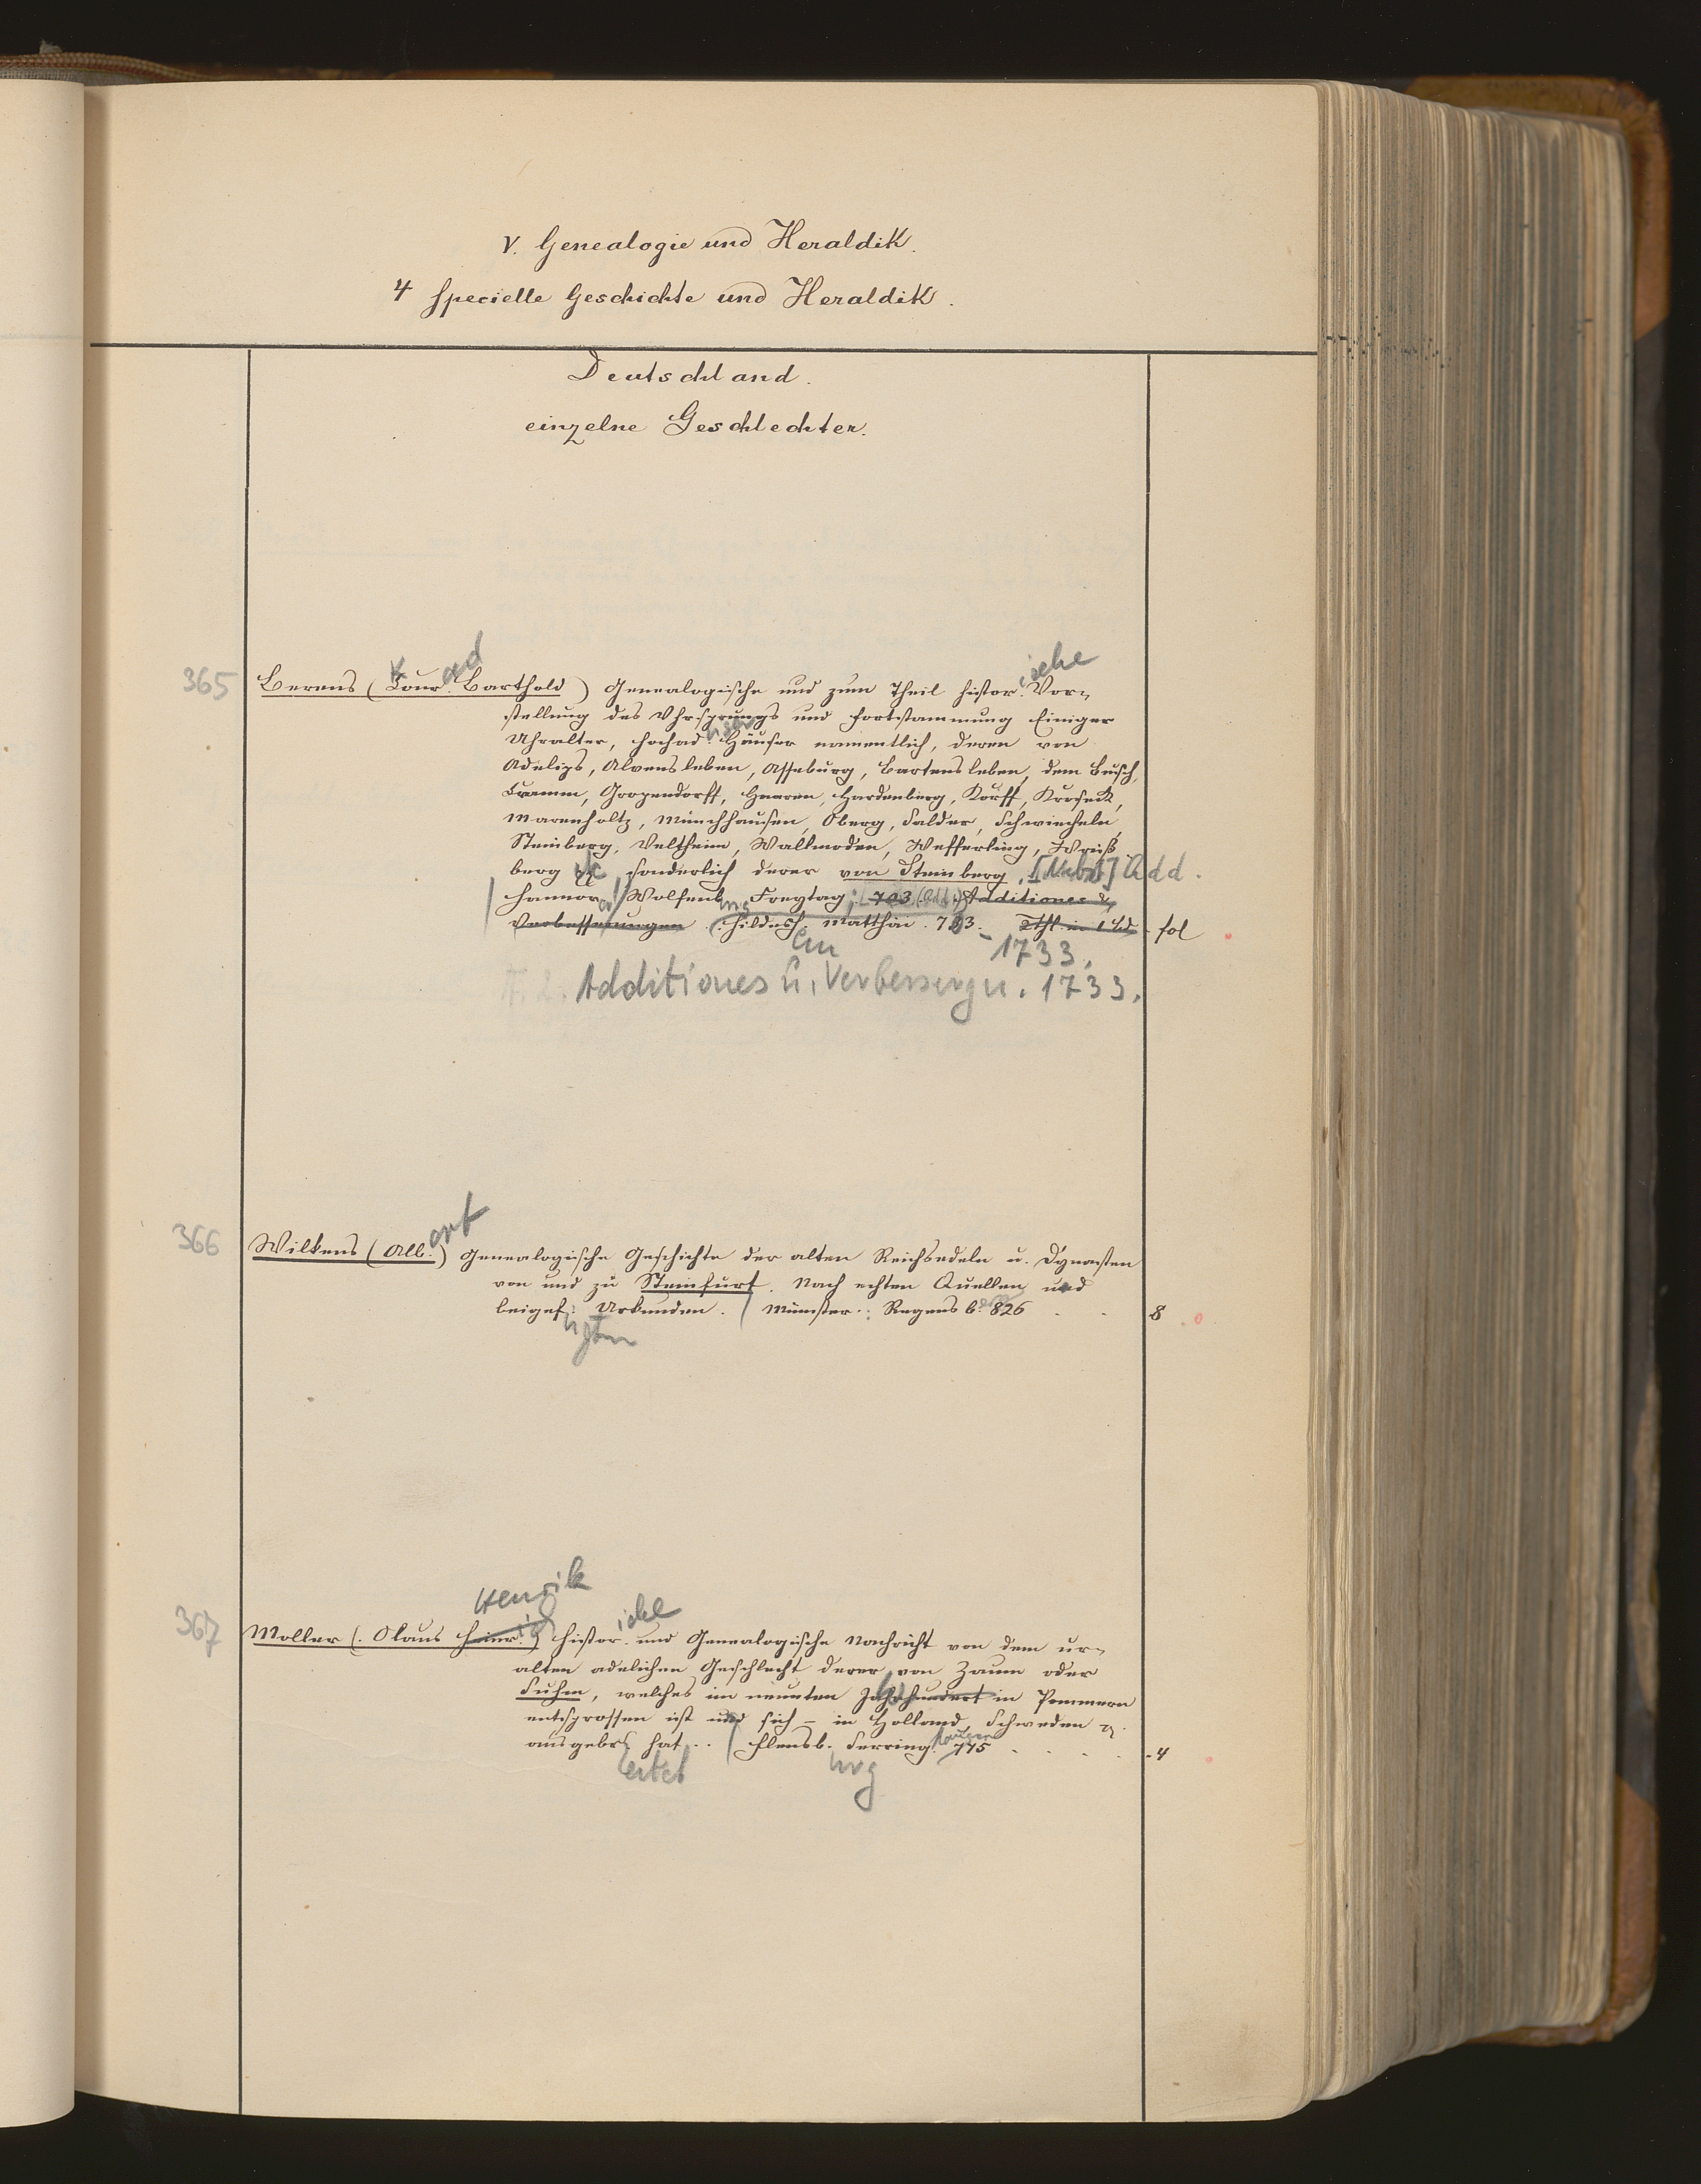 V. Genealogie und Heraldik.
4 Specielle Geschichte und Heraldik.
Deutschland.
einzelne Geschlechter.
365
Berens (Conr. Barthold) Genealogische und zum Theil histor. Vor-
K ad ische
stellung des Uhrsprungs und Fortstammung Einiger
Uhralter, Hochad. Häuser namentlich, deren von
Adelips, Alvensleben, Asseburg, Bartensleben, dem Busch,
Cramm, Gropendorff, Haaren, Hardenberg, Korff, Kroseck,
Marenholtz, Münchhausen, Oberg, Salder, Schwicheln,
Steinberg, Veltheim, Wallmoden, Wefferling, Wriß-
berg &c, sonderlich derer von Steinberg. [Nebst] Add.
Hannov. Wolfenb. Freytag 703 Additiones &
Verbesserungen (Hildesh. Matthäi. 7 3. 2 Thl. in 1 Bd fol
em 1733.
Additiones u. Verbessergn. 1733.
366
Wilkens (Alb.) Genealogische Geschichte der alten Reichsedeln u. Dynasten
ert
von und zu Steinfurt. Nach echten Quellen und
beigef. Urkunden. / Münster: Regensb. 826 8
ügten
367
Henrik
Moller (Olaus Heinr.) Histor. und Genealogische Nachricht von dem ur-
ische
alten adelichen Geschlecht derer von Zaum oder
Suhm, welches im neunten Jahrhundert in Pommern
entsprossen ist und sich - in Holland, Schweden &.
ausgebr. hat. / Flensb. Serring 775 4
eitet urg